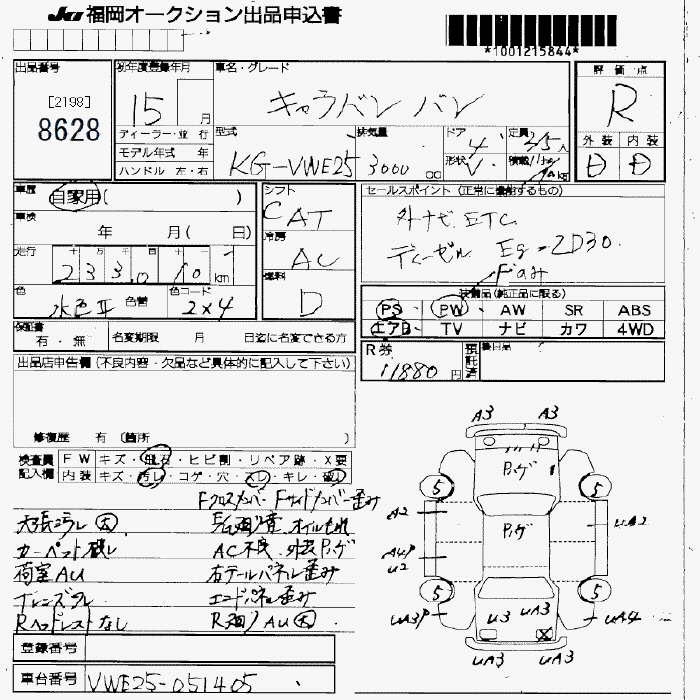 JU 福岡オークション出品申込書
*1001215844*
出品番号
[2198]
8628
初年度登録年月
15 月
ディーラー・並行
モデル年式 年
ハンドル 左・右
車名・グレード
キャラバン バン
型式
KG-VWE25
排気量
3000 cc
ドア
4
形状
V
定員
人
積載
kg
評価点
R
外装 内装
D D
車歴
自家用( )
車検
年 月( 日)
走行
十 万 千 百
2 3 3 0 10 km
色
水色II
色替
色コード
2×4
シフト
CAT
冷房
AC
燃料
D
セールスポイント(正常に機能するもの)
外ナビ ETC
ディーゼル Eg=ZD30
装備品(純正品に限る)
PS PW AW SR ABS
エアB TV ナビ カワ 4WD
保証書
有・無
名変期限 月 日迄に名変できる方
R券
11880円
預託済
出品店申告欄(不良内容・欠品など具体的に記入して下さい)
修復歴 有(箇所 )
検査員記入欄
FW キズ・飛石・ヒビ割・リペア跡・X要
内装 キズ・汚レ・コゲ・穴・スレ・キレ・破レ
Fクロスメンバー Fサイドメンバー歪み
天張ヨゴレ大
オイルもれ
カーペット破レ
AC不良 外装Pハゲ
荷室AU
右テールパネル歪み
エンドパネル歪み
Rヘッドレストなし
R廻りAU大
登録番号
車台番号
VWE25-051405
A3 A3
Pハゲ
5 5
A2
UA2
Pハゲ
U2
5 5
UA3P
U3 UA3
UA4
UA3 UA3